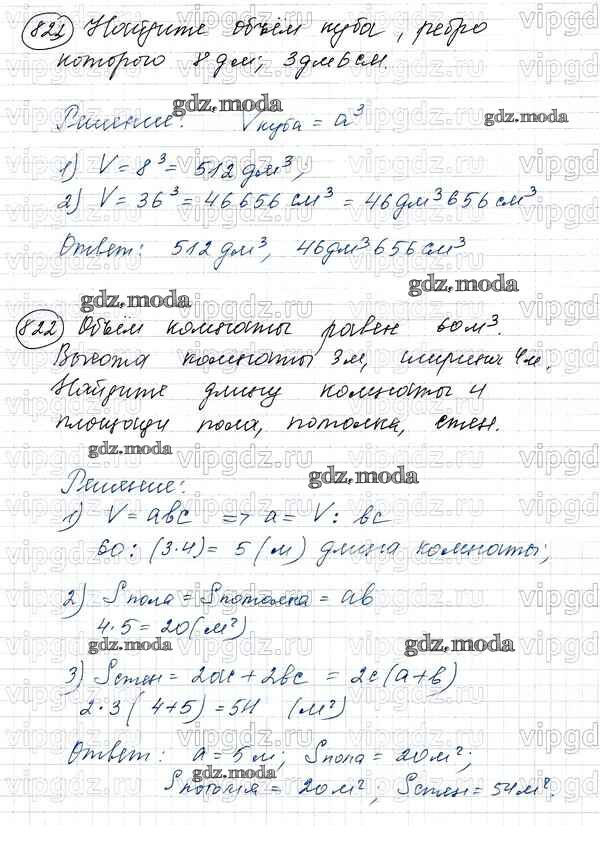 821 Найдите объём куба, ребро
которого 8 дм; 3 дм 6 см.
gdz.moda
gdz.moda
Решение: Vкуба = a³
1) V = 8³ = 512 дм³;
2) V = 36³ = 46656 см³ = 46 дм³ 656 см³
Ответ: 512 дм³, 46 дм³ 656 см³
gdz.moda
gdz.moda
822 Объём комнаты равен 60 м³.
Высота комнаты 3 м, ширина 4 м.
Найдите длину комнаты и
площади пола, потолка, стен.
gdz.moda
gdz.moda
Решение:
1) V = abc => a = V : bc
60 : (3·4) = 5 (м) длина комнаты;
2) Sпола = Sпотолка = ab
4·5 = 20 (м²)
gdz.moda
gdz.moda
3) Sстен = 2ac + 2bc = 2c(a+b)
2·3 (4+5) = 54 (м²)
Ответ: a = 5 м; Sпола = 20 м²;
gdz.moda
Sпотолка = 20 м²; Sстен = 54 м².
vipgdz.ru